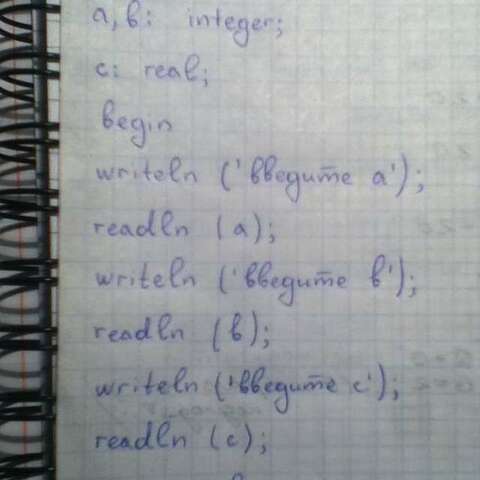 a, b: integer;
c: real;
begin
writeln ('введите a');
readln (a);
writeln ('введите b');
readln (b);
writeln ('введите c');
readln (c);